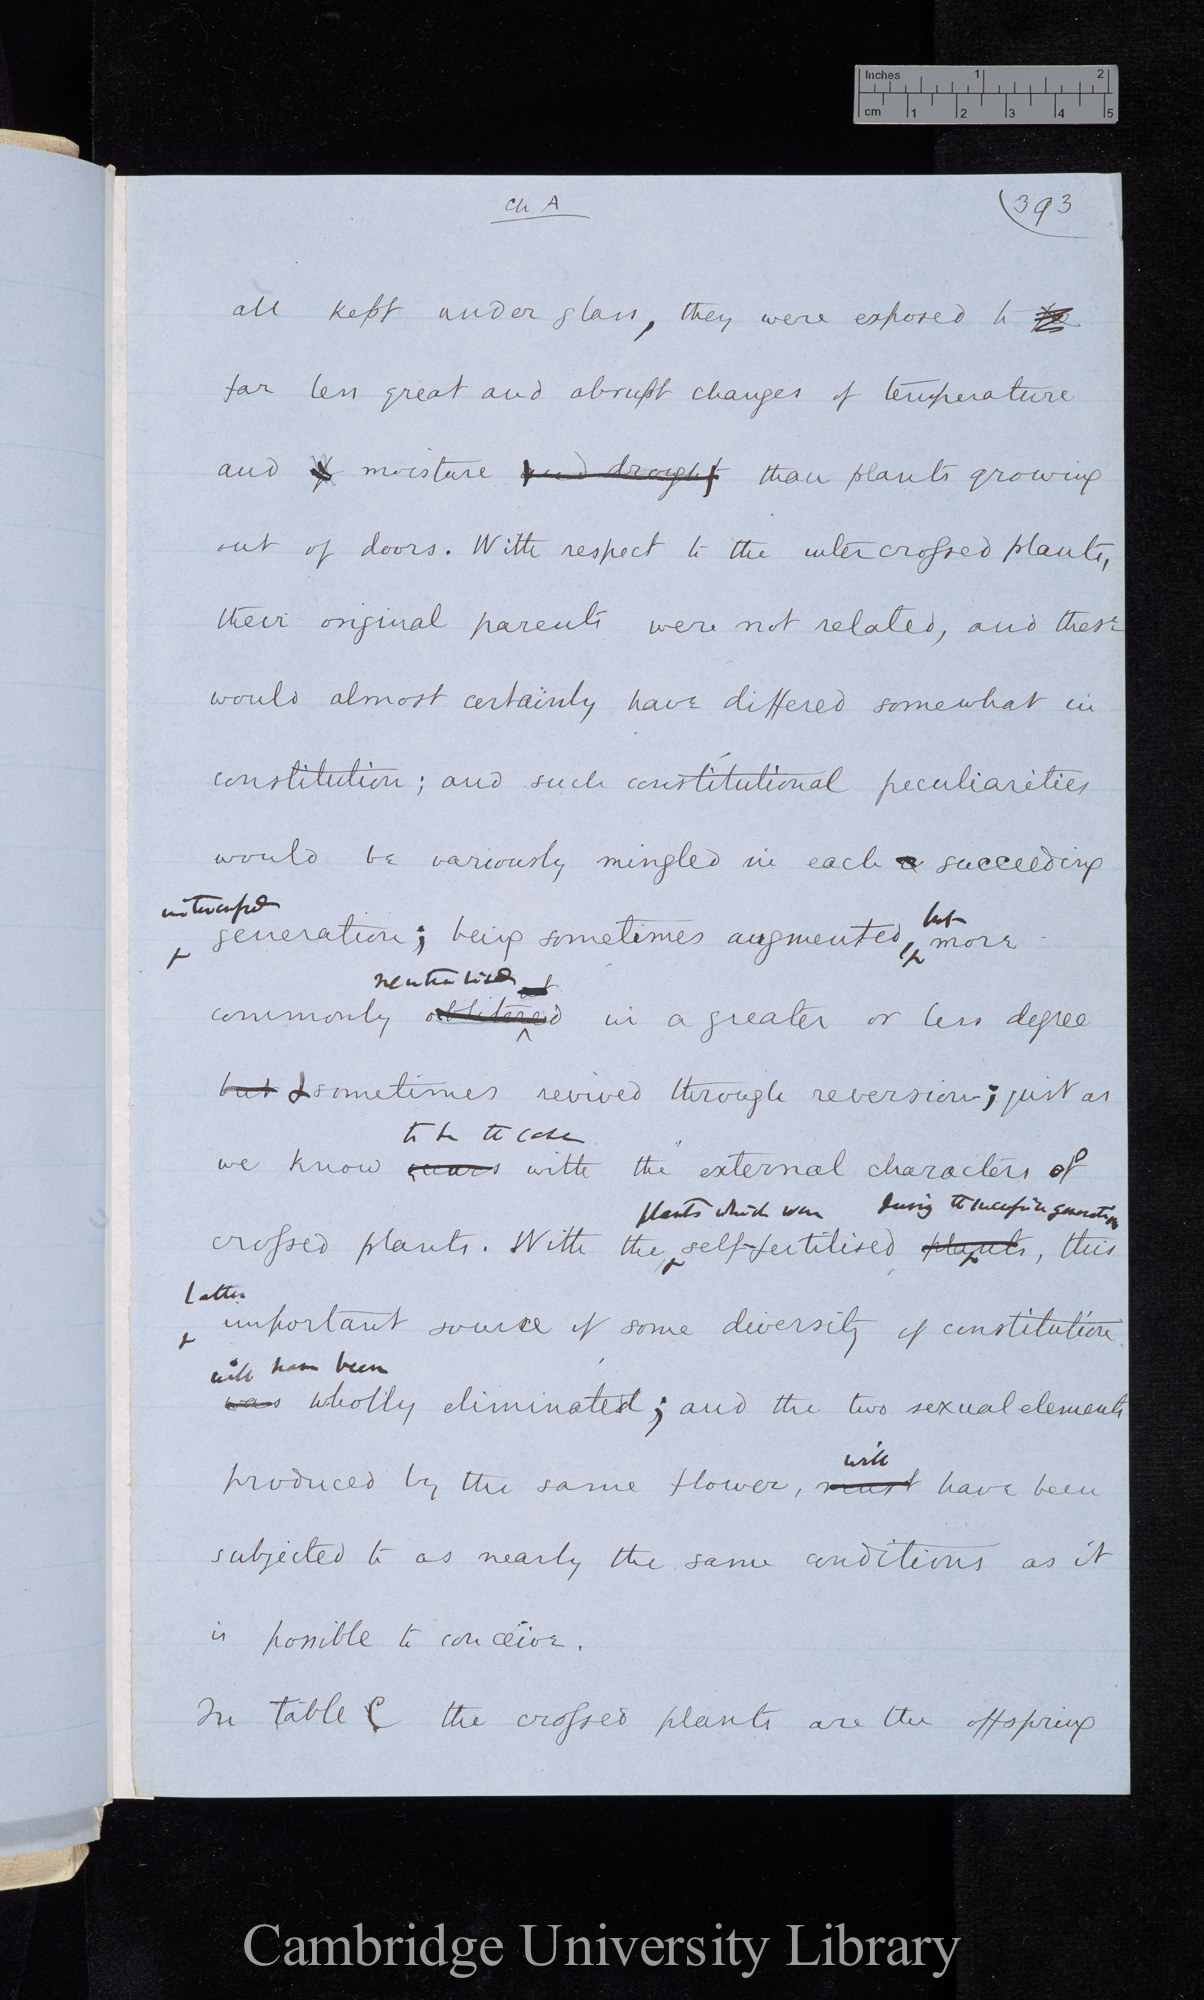 Inches 1 2
cm 1 2 3 4 5
Ch A
393
all kept under glass, they were exposed to
far less great and abrupt changes of temperature
and moisture and drought than plants growing
out of doors. With respect to the intercrossed plants,
their original parents were not related, and these
would almost certainly have differed somewhat in
constitution; and such constitutional peculiarities
would be variously mingled in each succeeding
intercrossed
generation; being sometimes augmented, but more
neutralised
commonly oblitered in a greater or less degree
but & sometimes revived through reversion; just as
to be the case
we know occurs with the external characters of
plants which were during the successive generations
crossed plants. With the self-fertilised plants, this
latter
important source of some diversity of constitution
will have been
was wholly eliminated; and the two sexual elements
will
produced by the same flower, must have been
subjected to as nearly the same conditions as it
is possible to conceive.
In table C the crossed plants are the offspring
Cambridge University Library